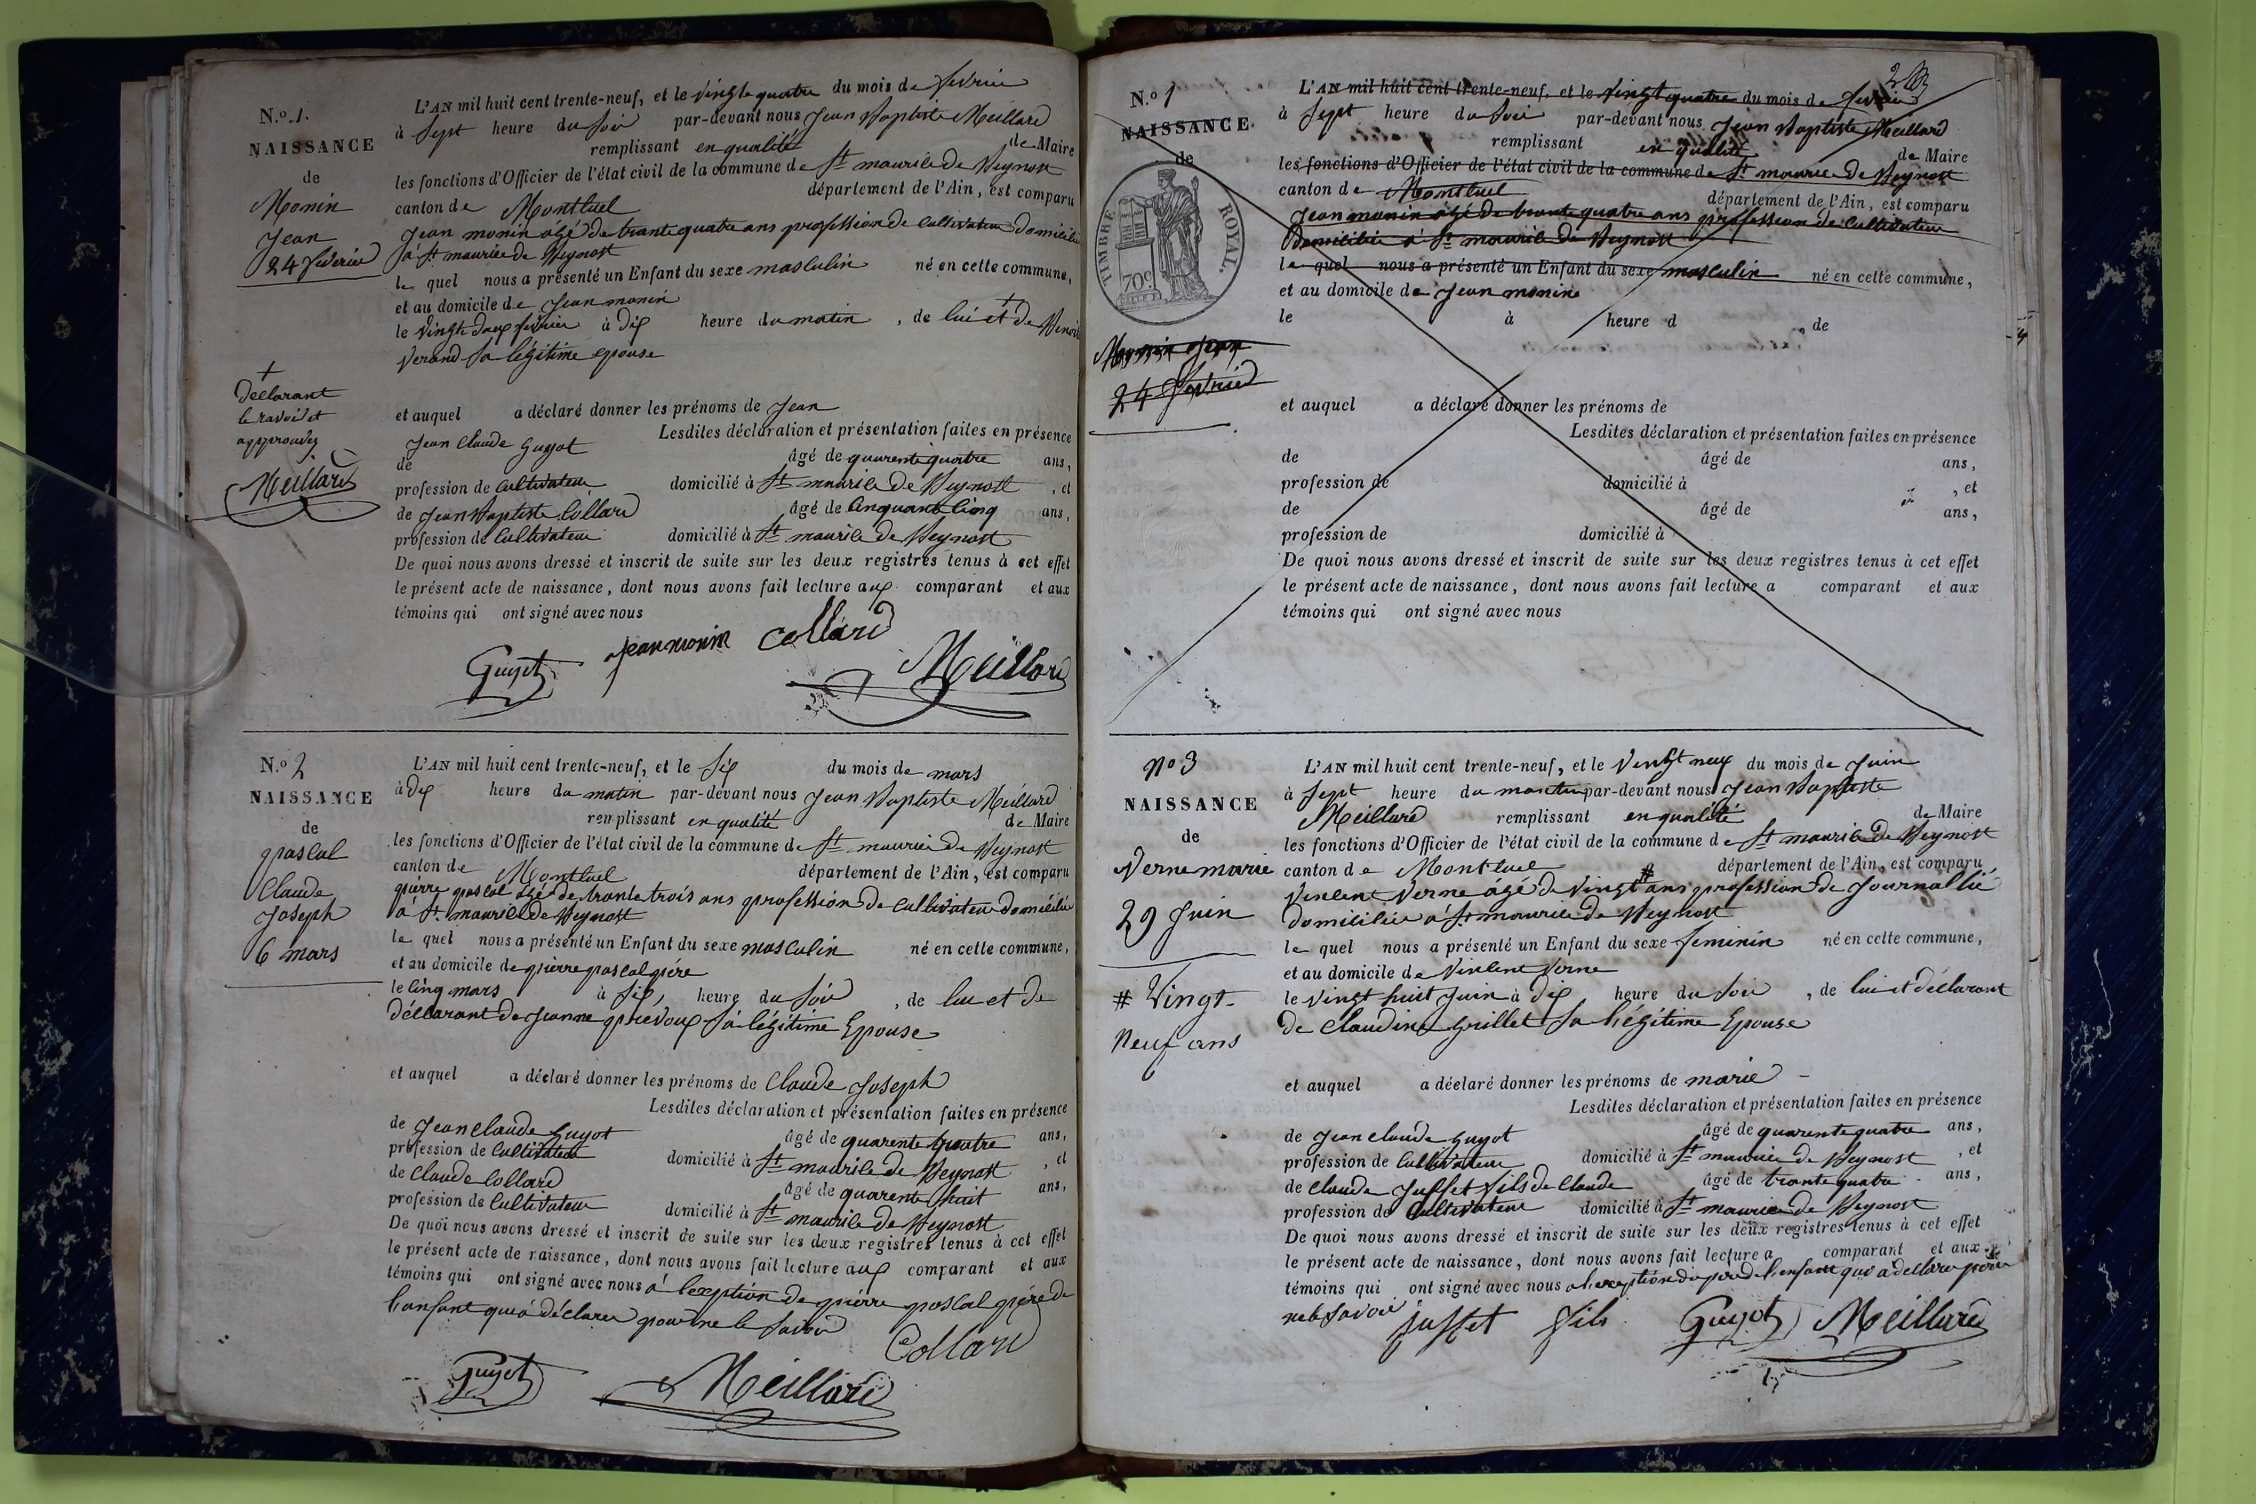 N.o 1.
NAISSANCE
de
Monin
Jean
24 fevrier
L'AN mil huit cent trente-neuf, et le vingt quatre du mois de fevrier
à Sept heure du Soir par-devant nous Jean Baptiste Meillard
remplissant en qualité de Maire
les fonctions d'Officier de l'état civil de la commune de St maurice de Beynost
canton de Montluel département de l'Ain, est comparu
Jean monin agé de trante quatre ans profession de Cultivateur domicilié
à St maurice de Beynost
le quel nous a présenté un Enfant du sexe masculin né en cette commune,
et au domicile de Jean monin
le vingt deux février à dix heure du matin, de lui et + de
Verand Sa légitime epouse
+
déclarant
le ravoil et
approuvez
Meillard
et auquel a déclaré donner les prénoms de Jean
Lesdites déclaration et présentation faites en présence
de Jean Claude Guyot âgé de quarente quatre ans,
profession de Cultivateur domicilié à St maurice de Beynost, et
de Jean Baptiste Collard âgé de Cinquante Cinq ans,
profession de Cultivateur domicilié à St maurice de Beynost
De quoi nous avons dressé et inscrit de suite sur les deux registres tenus à cet effet
le présent acte de naissance, dont nous avons fait lecture aux comparant et aux
témoins qui ont signé avec nous
Guyot Jean monin Collard
Meillard
N.o 2
NAISSANCE
de
pascal
Claude
Joseph
6 mars
L'AN mil huit cent trente-neuf, et le Six du mois de mars
à dix heure du matin par-devant nous Jean Baptiste Meillard
remplissant en qualité de Maire
les fonctions d'Officier de l'état civil de la commune de St maurice de Beynost
canton de Montluel département de l'Ain, est comparu
pierre pascal agé de trante trois ans profession de Cultivateur domicilié
à St maurice de Beynost
le quel nous a présenté un Enfant du sexe masculin né en cette commune,
et au domicile de pierre pascal père
le Cinq mars à Six, heure du Soir, de lui et de
déclarant de Jeanne Sa légitime Epouse
et auquel a déclaré donner les prénoms de Claude Joseph
Lesdites déclaration et présentation faites en présence
de Jean Claude Guyot âgé de quarente quatre ans,
profession de Cultivateur domicilié à St maurice de Beynost, et
de Claude Collard âgé de quarente huit ans,
profession de Cultivateur domicilié à St maurice de Beynost
De quoi nous avons dressé et inscrit de suite sur les deux registres tenus à cet effet
le présent acte de naissance, dont nous avons fait lecture aux comparant et aux
témoins qui ont signé avec nous à l'exeption de pierre pascal père de
l'enfant qui à déclarer pour ne le Savoir
Collard
Guyot Meillard
2
N.o 1
NAISSANCE
de
TIMBRE ROYAL.
70c.
Monnin Jean
24 Fevrier
L'AN mil huit cent trente-neuf, et le vingt quatre du mois de Fevrier
à Sept heure du Soir par-devant nous Jean Baptiste Meillard
remplissant en qualité de Maire
les fonctions d'Officier de l'état civil de la commune de St maurice de Beynost
canton de Montluel département de l'Ain, est comparu
Jean monin agé de trante quatre ans profession de Cultivateur
domicilié à St maurice de Beynost
le quel nous a présenté un Enfant du sexe masculin né en cette commune,
et au domicile de Jean monin
le à heure d de
et auquel a déclaré donner les prénoms de
Lesdites déclaration et présentation faites en présence
de âgé de ans,
profession de domicilié à, et
de âgé de ans,
profession de domicilié à
De quoi nous avons dressé et inscrit de suite sur les deux registres tenus à cet effet
le présent acte de naissance, dont nous avons fait lecture a comparant et aux
témoins qui ont signé avec nous
No 3
NAISSANCE
de
Verne marie
29 Juin
# Vingt
Neuf ans
L'AN mil huit cent trente-neuf, et le Vingt neuf du mois de Juin
à Sept heure du matin par-devant nous Jean Baptiste
Meillard remplissant en qualité de Maire
les fonctions d'Officier de l'état civil de la commune de St maurice de Beynost
canton de Montluel département de l'Ain, est comparu
Vinlent Verne agé de vingt # ans profession de Journallié
domicilié à St maurice de Beynost
le quel nous a présenté un Enfant du sexe feminin né en cette commune,
et au domicile de Vinlent Verne
le vingt huit Juin à dix heure du Soir, de lui et déclarant
de Claudine Grillet Sa légitime Epouse
et auquel a déclaré donner les prénoms de marie
Lesdites déclaration et présentation faites en présence
de Jean Claude Guyot âgé de quarente quatre ans,
profession de Cultivateur domicilié à St maurice de Beynost, et
de Claude Juffet fils de Claude âgé de trante quatre ans,
profession de Cultivateur domicilié à St maurice de Beynost
De quoi nous avons dressé et inscrit de suite sur les deux registres tenus à cet effet
le présent acte de naissance, dont nous avons fait lecture a comparant et aux
témoins qui ont signé avec nous a l'exeption du père de l'enfant qui a déclaré pour
ne le Savoir
Juffet fils Guyot Meillard